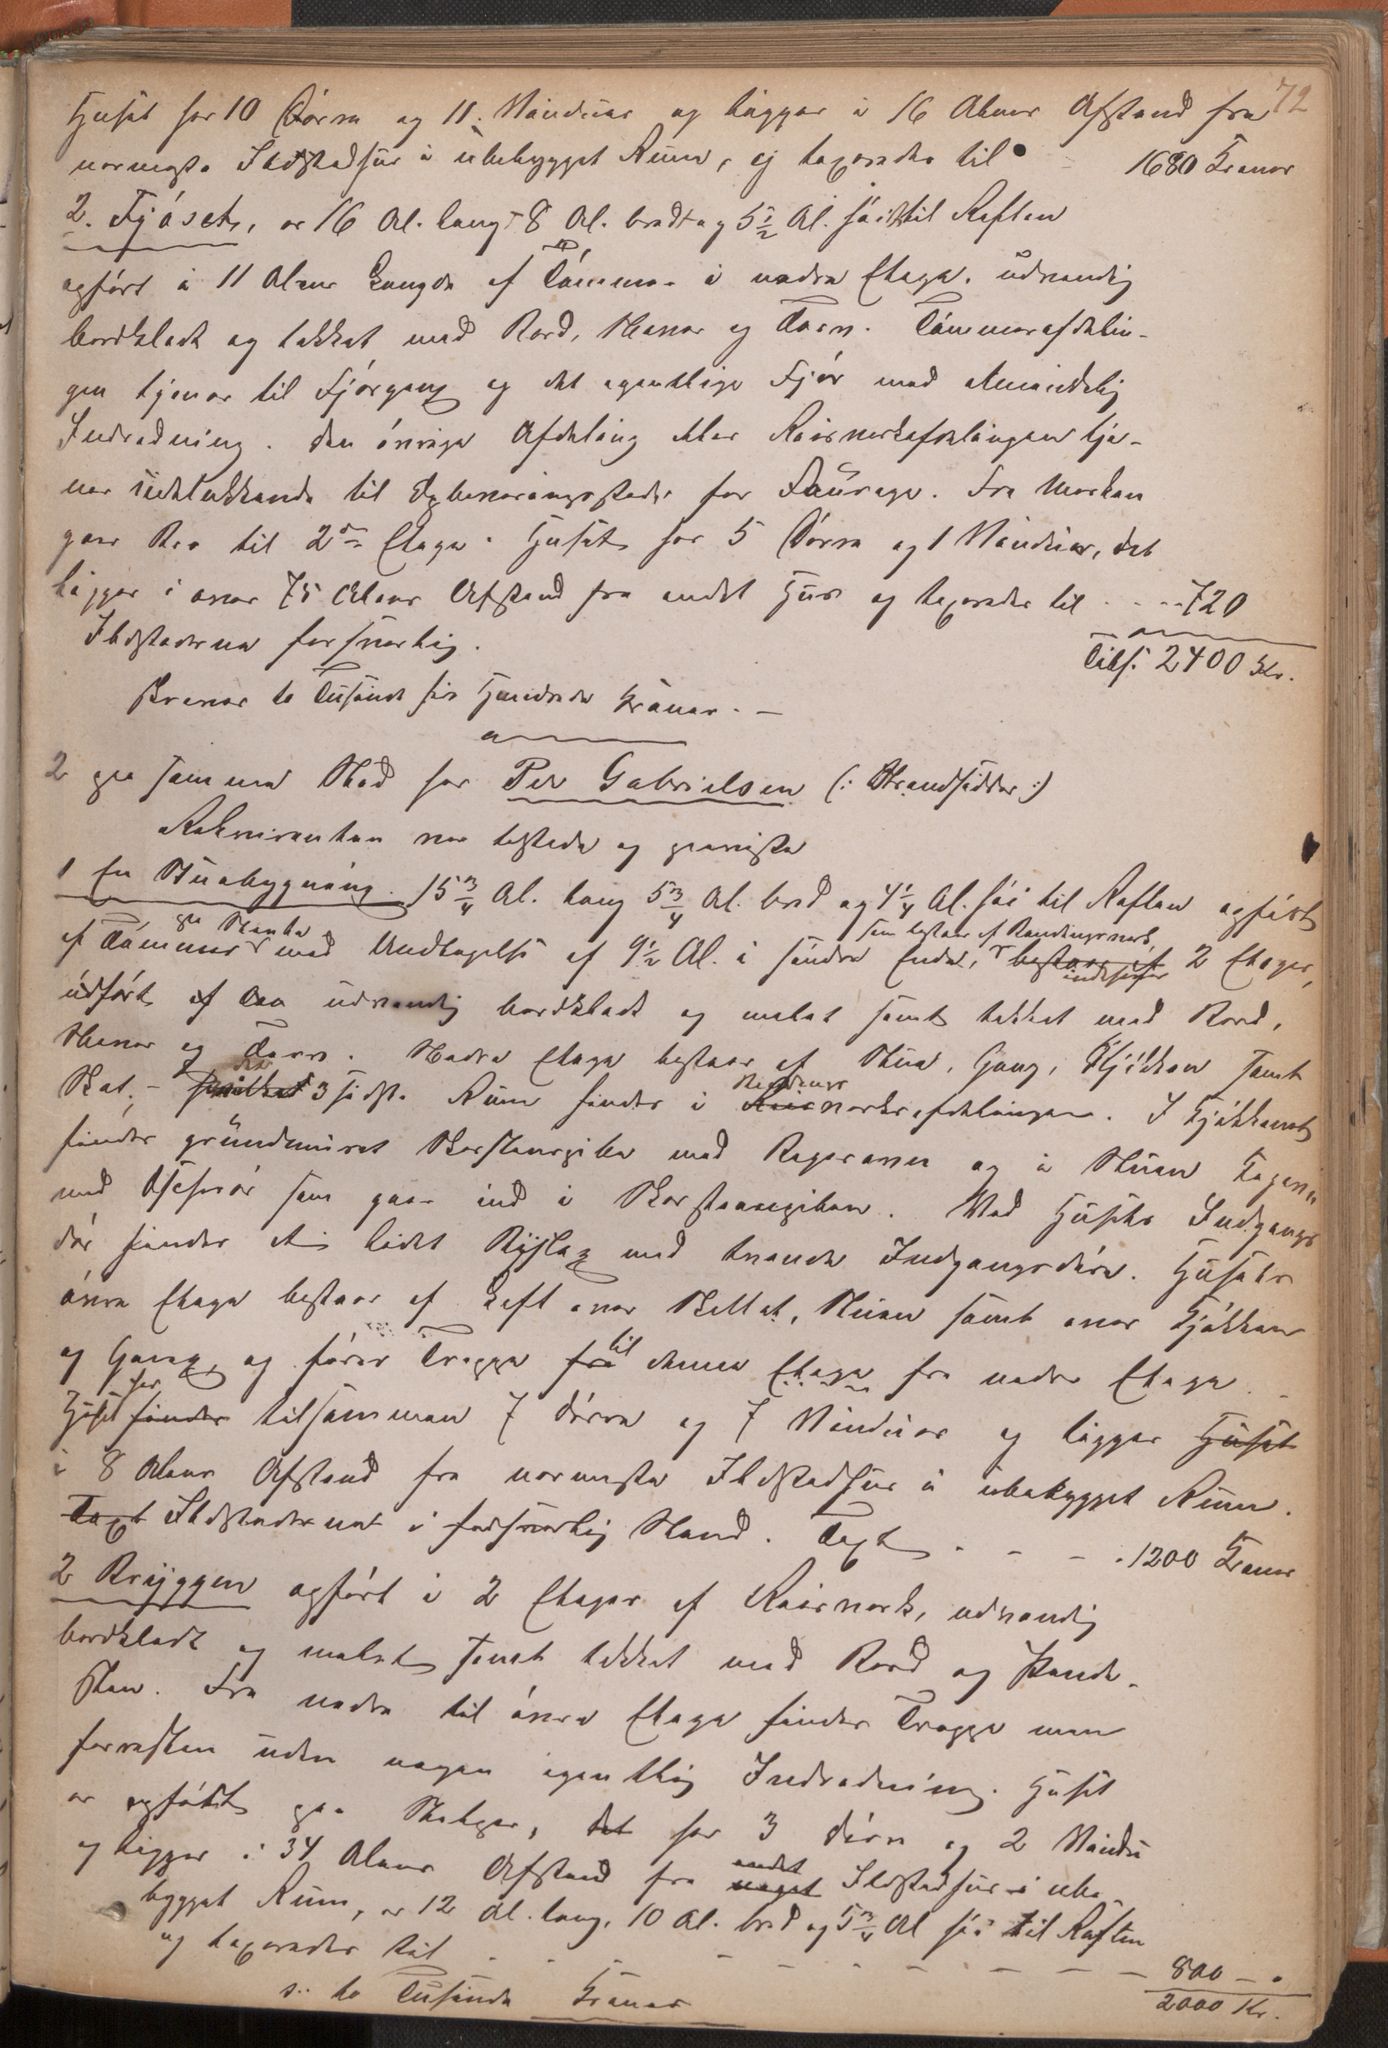 72
Huset har 10 Dörre og 11 Vinduer og ligger i 16 Alens Afstand fra
nærmeste Ildstedhus i ubebygget Rum, og taxeredes til 1680 Kroner
2. Fjöset, er 16 Al. langt 8 Al. bredt og 5 1/2 Al. höit til Raften
opfört i 11 Alens Længde af Tömmer i nedre Etage, udvendig
bordklædt og tækket med Bord, Næver og Torv. Tömmerafdelin-
gen tjener til Fjösgang og det egentlige Fjös med almindelig
Indredning. Den övrige Afdeling eller Reisverksafdelingen tje-
ner udelukkende til Opbevaringssteder for Fourage. Fra Marken
gaar Bro til 2den Etage. Huset har 5 Dörre og 1 Vindue, det
ligger i over 75 Alens Afstand fra andet Hus og taxeredes til - - - 720
Ildstederne forsvarlig. Tils. 2400 Kr.
Skriver to Tusinde fire Hundrede Kroner. -
2 paa samme Sted for Peder Gabrielsen (: Strandsidder :)
Rekvirenten var tilstede og paaviste
1 En Stuebygning. 15 3/4 Al. lang 5 3/4 Al. bred og 4 1/4 Al. höi til Raften opfört
paa Stenke som bestaar af Bindingsverk
af Tömmer med Undtagelse af 9 1/2 Al. i söndre Ende, bestaar af 2 Etager,
indeholder
udfört af Træ udvendig bordklædt og malet samt tækket med Bord,
Næver og Torv. Nedre Etage bestaar af Stue, Gang, Kjökken samt
de Bindings
Slet. - hvilket 3 sidste Rum findes i Reisverksafdelingen. I Kjökkenet
findes grundmuret Skorstenspibe med Bageravn og i Stuen Kagelovn
med Rör som gaar ind i Skorstenspiben. Ved Husets Indgangs
dör findes et lidet Bislag med tvende Indgangsdöre. Husets
övre Etage bestaar af Loft over Slettet, Stuen samt over Kjökken
til
og Gang, og förer Trappe fra denne Etage fra nedre Etage. -
har
Huset findes tilsammen 7 Dörre og 7 Vinduer og ligger Huset
i 8 Alens Afstand fra nærmeste Ildstedhus i ubebygget Rum.
Taxt Ildstederne i forsvarlig Stand. Taxt - - - 1200 Kroner
2 Bryggen opfört i 2 Etager af Reisverk, udvendig
bordklædt og malet samt tækket med Bord og Pande-
sten. Fra nedre til övre Etage findes Trappe men
forresten uden nogen egentlig Indredning. Huset
er opfört paa Stolper, det har 3 Döre og 2 Vindu
andet
og ligger i 34 Alens Afstand fra noget Ildstedhus i ube-
bygget Rum, er 12 Al. lang, 10 Al. bred og 5 3/4 Al höi til Raften
og taxeredes til - - - - - - - - 800 - .
s: to Tusinde Kroner 2000 Kr.